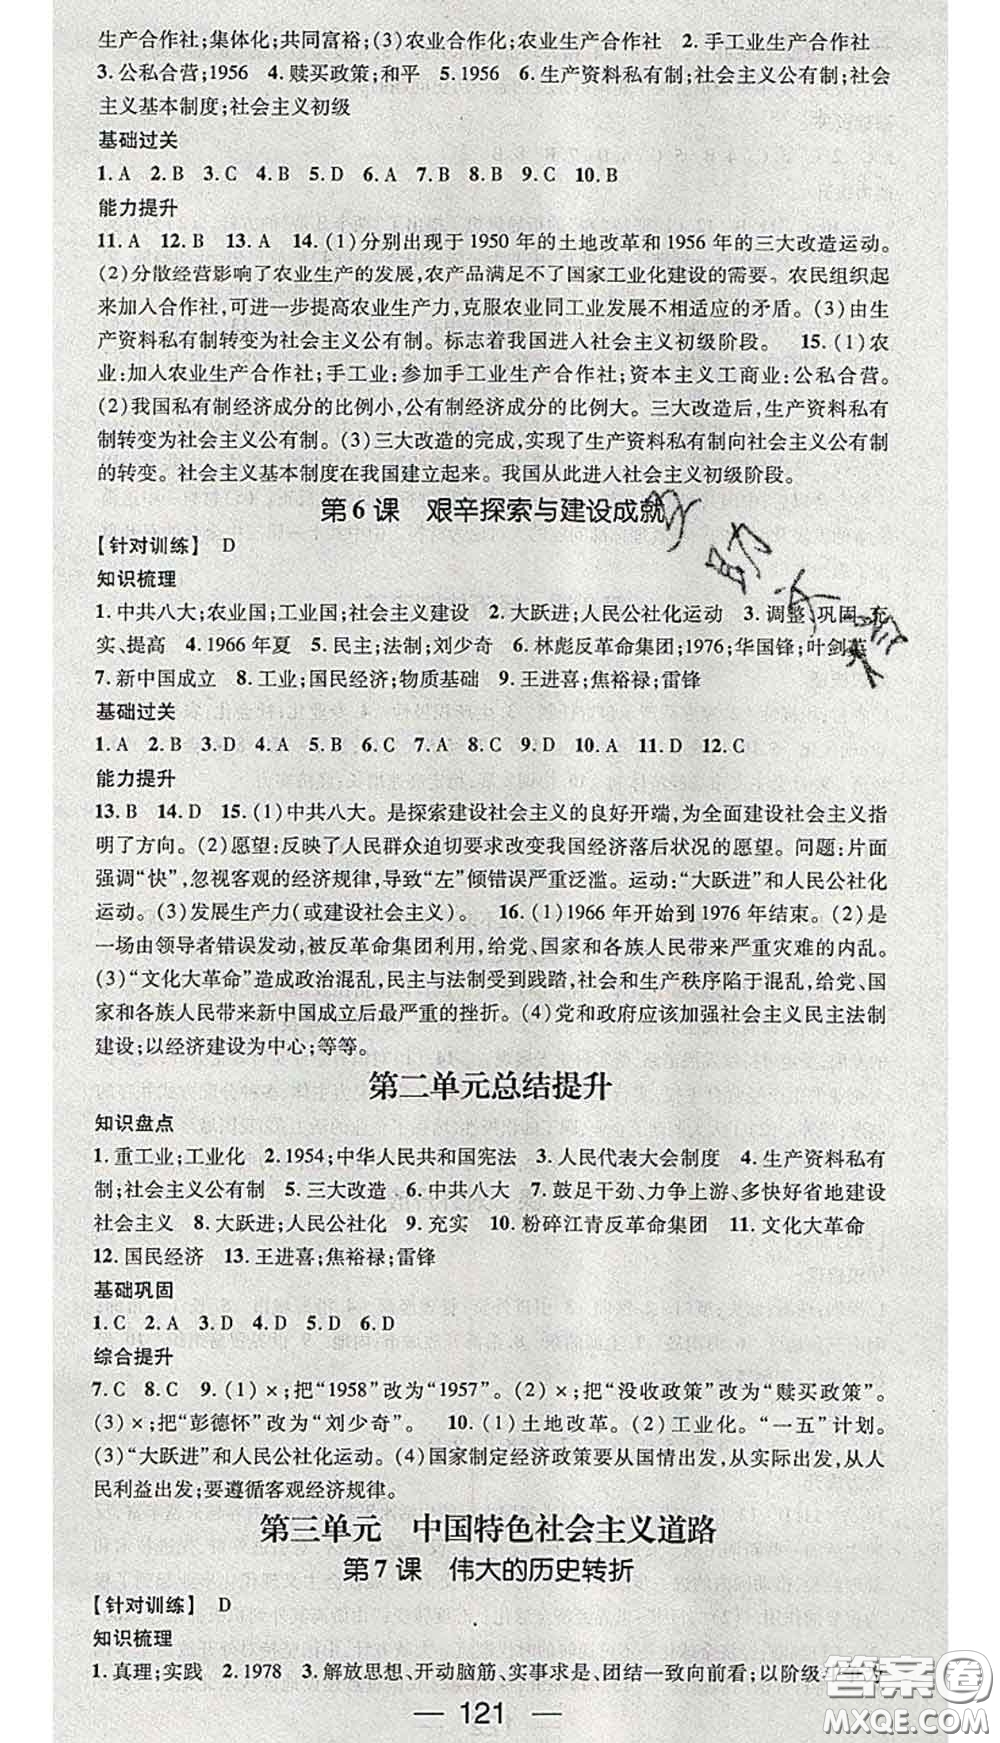 生产合作社;集体化;共同富裕;(3)农业合作化;农业生产合作社　2. 手工业生产合作社
3. 公私合营;1956　4. 赎买政策;和平　5. 1956　6. 生产资料私有制;社会主义公有制;社会
主义基本制度;社会主义初级
基础过关
1. A　2. B　3. C　4. B　5. D　6. A　7. B　8. B　9. C　10. B
能力提升
11. A　12. B　13. A　14. (1)分别出现于1950年的土地改革和1956年的三大改造运动。
(2)分散经营影响了农业生产的发展,农产品满足不了国家工业化建设的需要。农民组织起
来加入合作社,可进一步提高农业生产力,克服农业同工业发展不相适应的矛盾。(3)由生
产资料私有制转变为社会主义公有制。标志着我国进入社会主义初级阶段。　15. (1)农
业:加入农业生产合作社;手工业:参加手工业生产合作社;资本主义工商业:公私合营。
(2)我国私有制经济成分的比例小,公有制经济成分的比例大。三大改造后,生产资料私有
制转变为社会主义公有制。(3)三大改造的完成,实现了生产资料私有制向社会主义公有制
的转变。社会主义基本制度在我国建立起来。我国从此进入社会主义初级阶段。
第6课　艰辛探索与建设成就
【针对训练】　D
知识梳理
1. 中共八大;农业国;工业国;社会主义建设　2. 大跃进;人民公社化运动　3. 调整、巩固、充
实、提高　4. 1966年夏　5. 民主;法制;刘少奇　6. 林彪反革命集团;1976;华国锋;叶剑英
7. 新中国成立　8. 工业;国民经济;物质基础　9. 王进喜;焦裕禄;雷锋
基础过关
1. A　2. B　3. D　4. A　5. B　6. C　7. A　8. C　9. D　10. A　11. D　12. C
能力提升
13. B　14. D　15. (1)中共八大。是探索建设社会主义的良好开端,为全面建设社会主义指
明了方向。(2)愿望:反映了人民群众迫切要求改变我国经济落后状况的愿望。问题:片面
强调“快”,忽视客观的经济规律,导致“左”倾错误严重泛滥。运动:“大跃进”和人民公社化
运动。(3)发展生产力(或建设社会主义)。　16. (1)1966年开始到1976年结束。(2)是
一场由领导者错误发动,被反革命集团利用,给党、国家和各族人民带来严重灾难的内乱。
(3)“文化大革命”造成政治混乱,民主与法制受到践踏,社会和生产秩序陷于混乱,给党、国
家和各族人民带来新中国成立后最严重的挫折。(4)党和政府应该加强社会主义民主法制
建设;以经济建设为中心;等等。
第二单元总结提升
知识盘点
1. 重工业;工业化　2. 1954;中华人民共和国宪法　3. 人民代表大会制度　4. 生产资料私有
制;社会主义公有制　5. 三大改造　6. 中共八大　7. 鼓足干劲、力争上游、多快好省地建设
社会主义　8. 大跃进;人民公社化　9. 充实　10. 粉碎江青反革命集团　11. 文化大革命
12. 国民经济　13. 王进喜;焦裕禄;雷锋
基础巩固
1. C　2. A　3. D　4. D　5. D　6. D
综合提升
7. C　8. C　9. (1)×;把“1958”改为“1957”。(2)×;把“没收政策”改为“赎买政策”。
(3)×;把“彭德怀”改为“刘少奇”。　10. (1)土地改革。(2)工业化。“一五”计划。
(3)“大跃进”和人民公社化运动。(4)国家制定经济政策要从国情出发,从实际出发,从人
民利益出发;要遵循客观经济规律。
第三单元　中国特色社会主义道路
第7课　伟大的历史转折
【针对训练】　D
知识梳理
1. 真理;实践　2. 1978　3. 解放思想、开动脑筋、实事求是、团结一致向前看;以阶级斗争为
— 121 —
答案圈
MXQE.COM